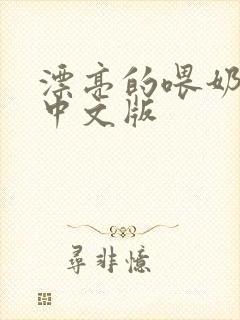 漂亮的喂奶
中文版
寻非憶